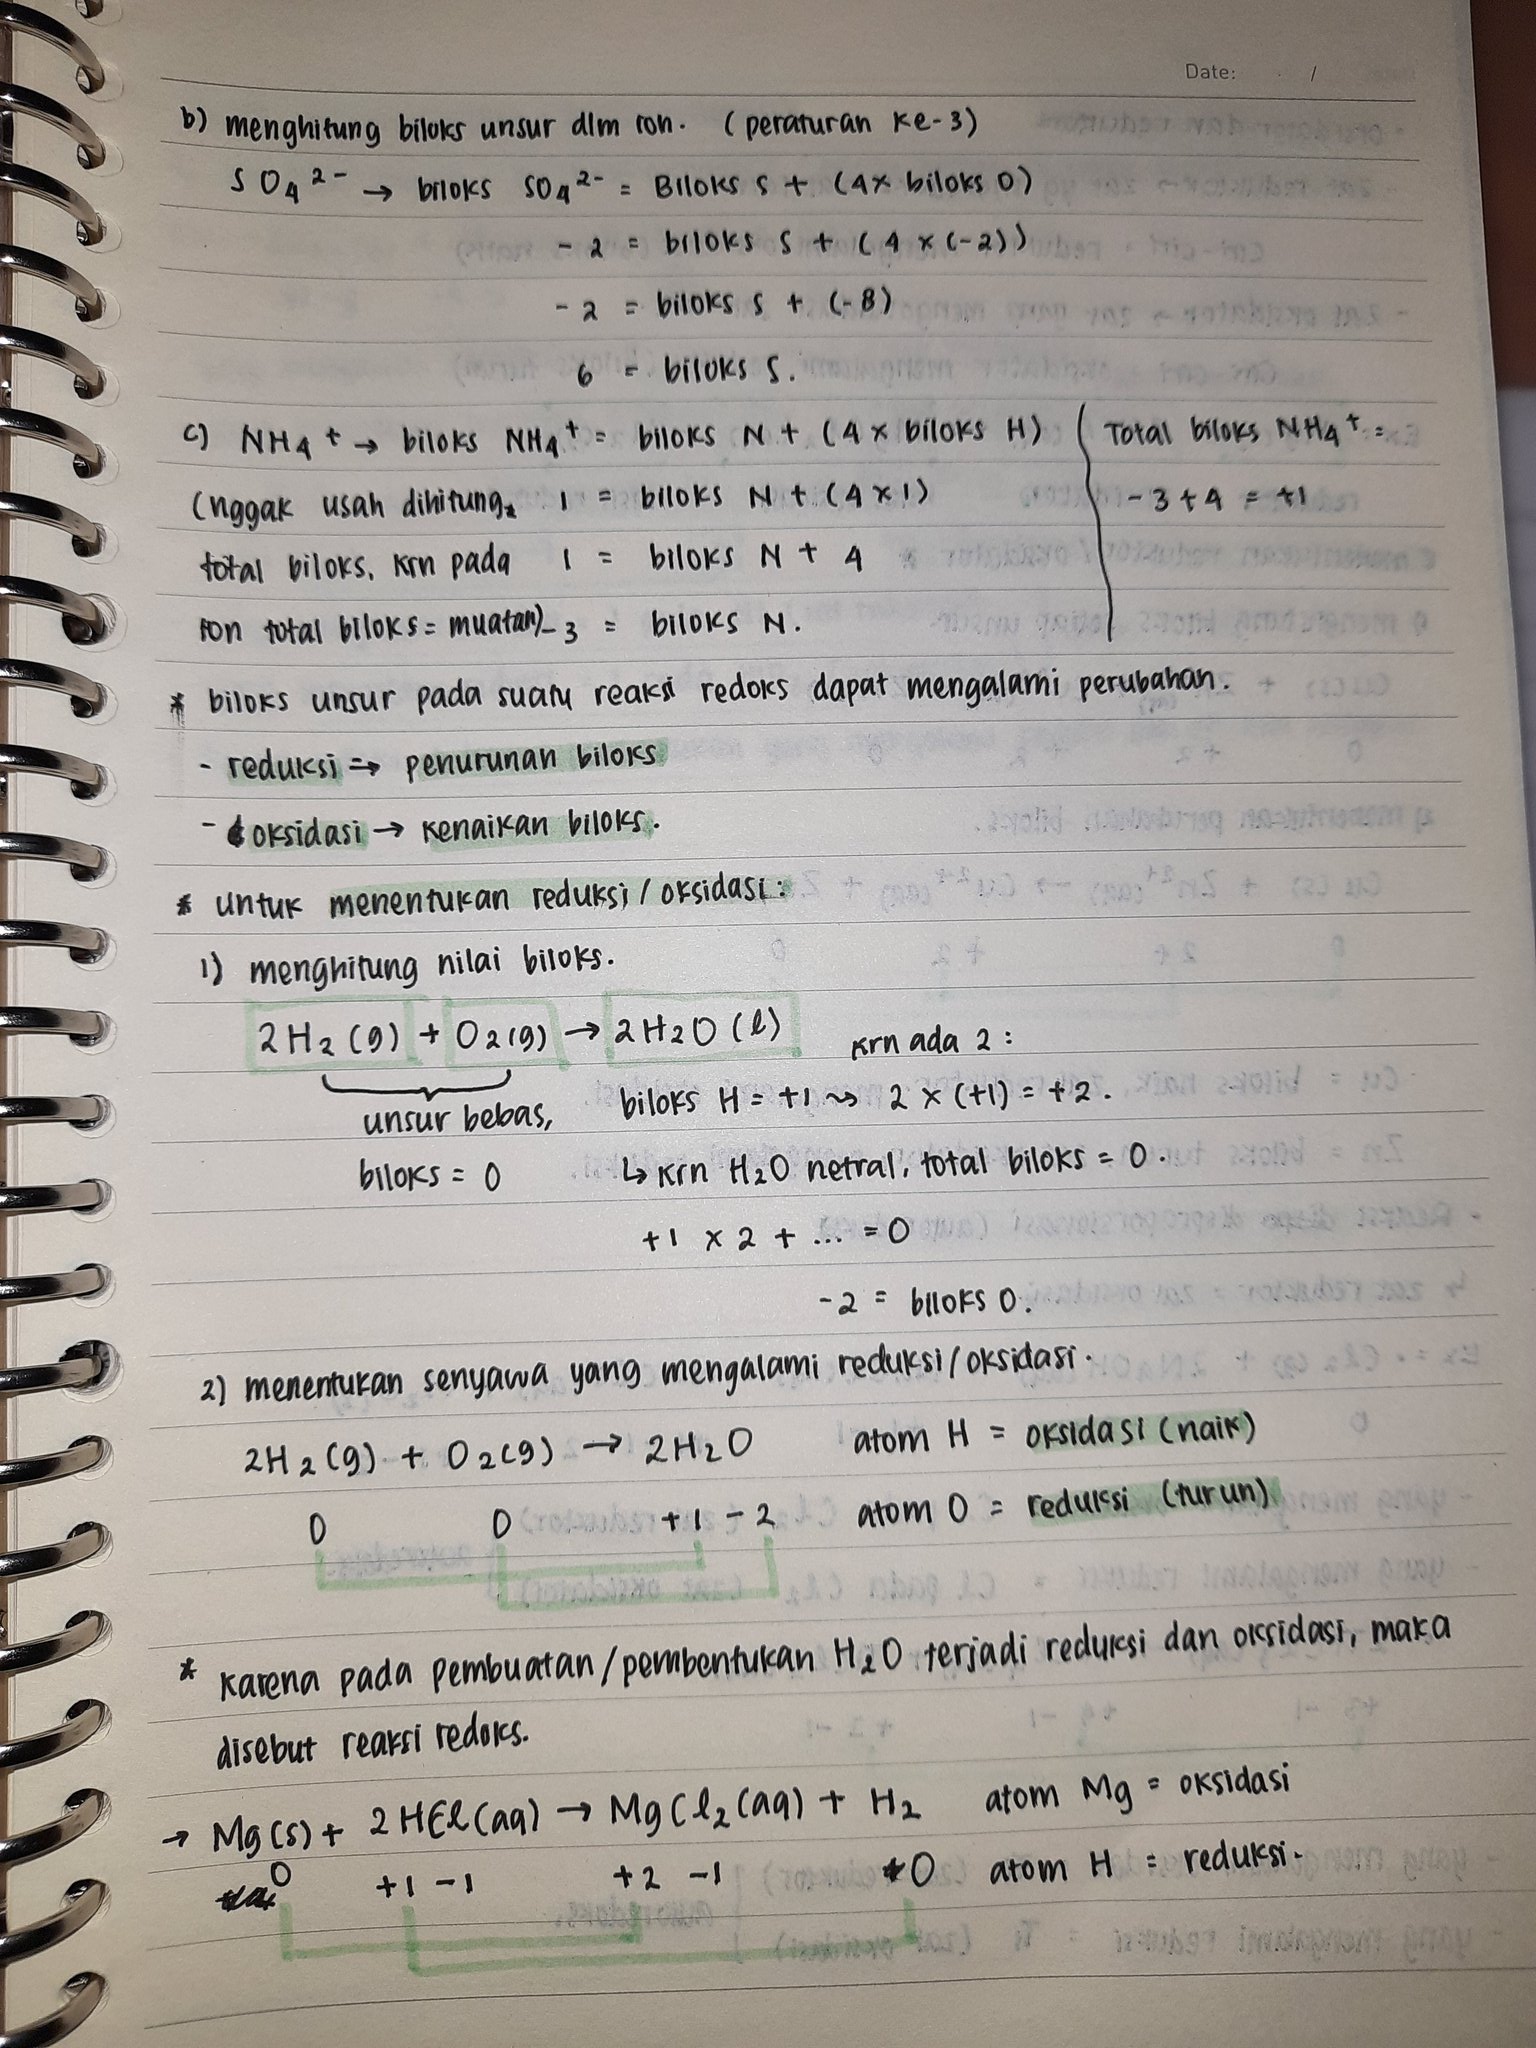 Date: /
b) menghitung biloks unsur dlm ion. (peraturan ke-3)
SO4 2- → biloks SO4 2- = Biloks S + (4x biloks O)
-2 = biloks S + (4 x (-2))
-2 = biloks S + (-8)
6 = biloks S.
c) NH4 + → biloks NH4 + = biloks N + (4 x biloks H) Total biloks NH4 + =
(nggak usah dihitung 1 = biloks N + (4 x 1) -3 + 4 = +1
total biloks, krn pada 1 = biloks N + 4
ion total biloks = muatan) -3 = biloks N.
* biloks unsur pada suatu reaksi redoks dapat mengalami perubahan.
- reduksi → penurunan biloks
- oksidasi → kenaikan biloks.
* untuk menentukan reduksi / oksidasi :
1) menghitung nilai biloks.
2H2 (g) + O2 (g) → 2H2O (l) krn ada 2 :
unsur bebas, biloks H = +1 ↝ 2 x (+1) = +2.
biloks = 0 ↳ krn H2O netral, total biloks = 0.
+1 x 2 + ... = 0
-2 = biloks O.
2) menentukan senyawa yang mengalami reduksi/oksidasi.
2H2 (g) + O2 (g) → 2H2O atom H = oksidasi (naik)
0 0 +1 -2 atom O = reduksi (turun)
* karena pada pembuatan/pembentukan H2O terjadi reduksi dan oksidasi, maka
disebut reaksi redoks.
→ Mg (s) + 2HCl (aq) → MgCl2 (aq) + H2 atom Mg = oksidasi
0 +1 -1 +2 -1 0 atom H = reduksi.